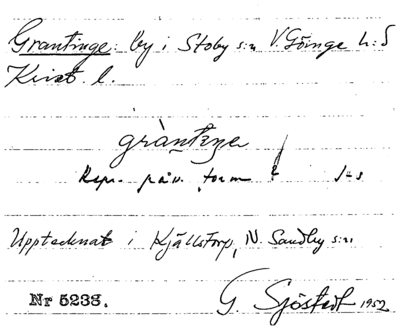 Grantinge: by i Stoby s:n V. Göinge h:d
Krist. l.
gràntenge
Repr. päv. form ?
Upptecknat i Kjällstorp, N. Sandby s:n
Nr 5238. G. Sjöstedt 1952